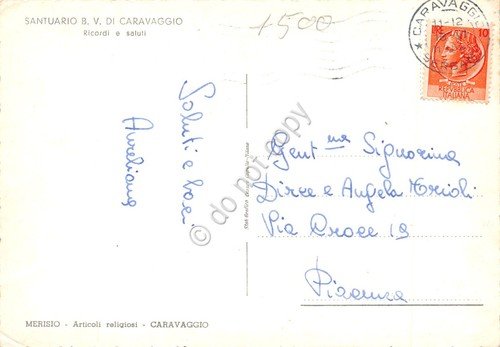 SANTUARIO B. V. DI CARAVAGGIO
Ricordi e saluti
1500
CARAVAGGIO
11-12
10
REPUBBLICA
ITALIANA
Saluti e baci
Aureliana
do not copy
Gent ma Signorina
Dirce e Angela
Via Croce 19
Piacenza
MERISIO - Articoli religiosi - CARAVAGGIO